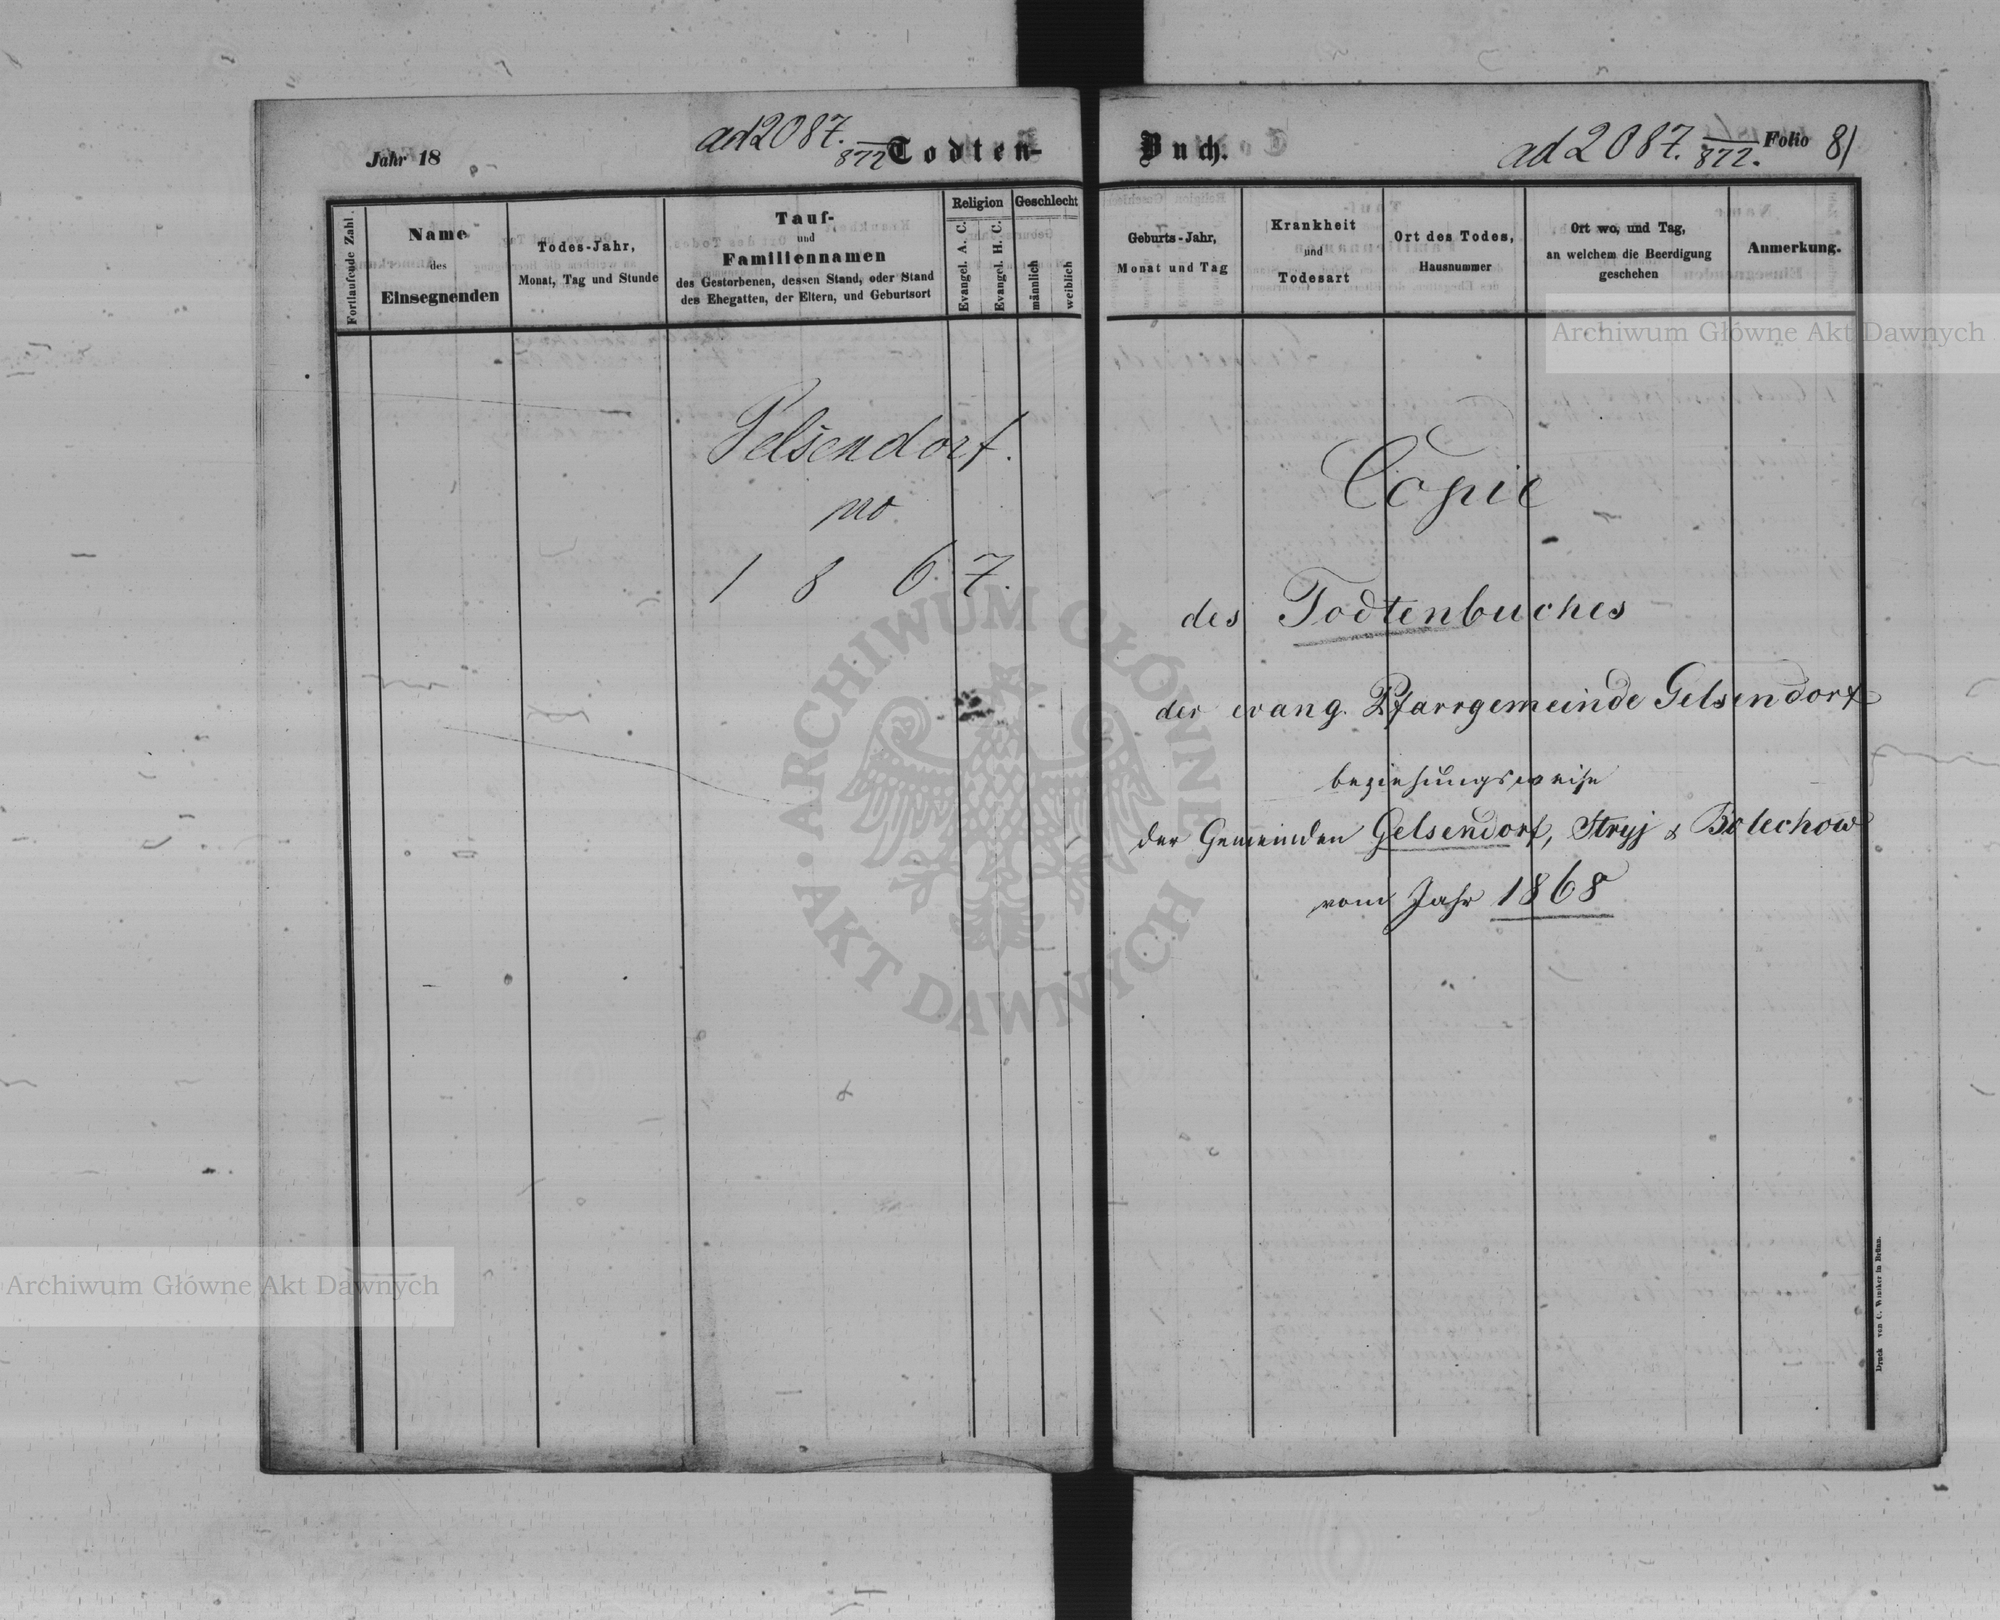 Jahr 18
ad 2087.
872
Todten-
Fortlaufende Zahl.
Name
des
Einsegnenden
Todes-Jahr,
Monat, Tag und Stunde
Tauf-
und
Familiennamen
des Gestorbenen, dessen Stand, oder Stand
des Ehegatten, der Eltern, und Geburtsort
Religion
Evangel. A. C.
Evangel. H. C.
Geschlecht
männlich
weiblich
Gelsendorf.
pro
1867.
Buch.
ad 2087.
872.
Folio 81
Geburts-Jahr,
Monat und Tag
Krankheit
und
Todesart
Ort des Todes,
Hausnummer
Ort wo, und Tag,
an welchem die Beerdigung
geschehen
Anmerkung.
Copie
des Todtenbuches
der evang. Pfarrgemeinde Gelsendorf
beziehungsweise
der Gemeinden Gelsendorf, Stryj & Bolechow
vom Jahr 1868
Druck von C. Winiker in Brünn.
Archiwum Główne Akt Dawnych
ARCHIWUM GŁÓWNE · AKT DAWNYCH ·
Archiwum Główne Akt Dawnych